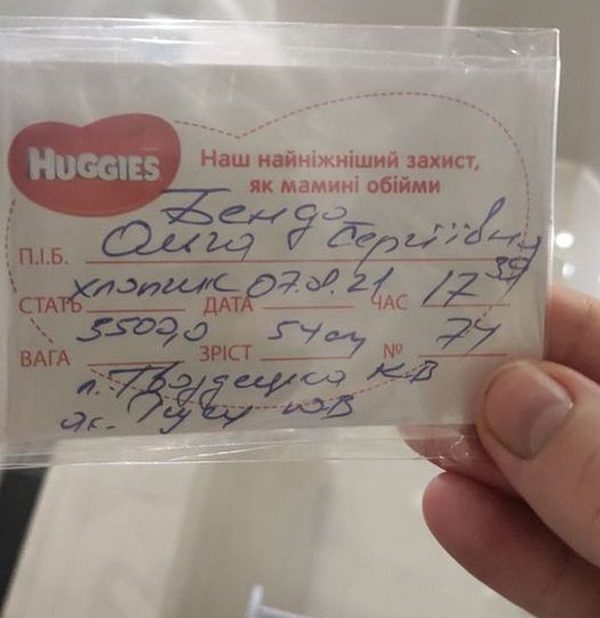 HUGGIES
Наш найніжніший захист,
як мамині обійми
Бендо
П.І.Б. Ольга Сергіївна
СТАТЬ хлопчик ДАТА 07.8.21 ЧАС 17 39
ВАГА 3500,0 ЗРІСТ 54 см № 74
л. КВ
ак. ЮВ